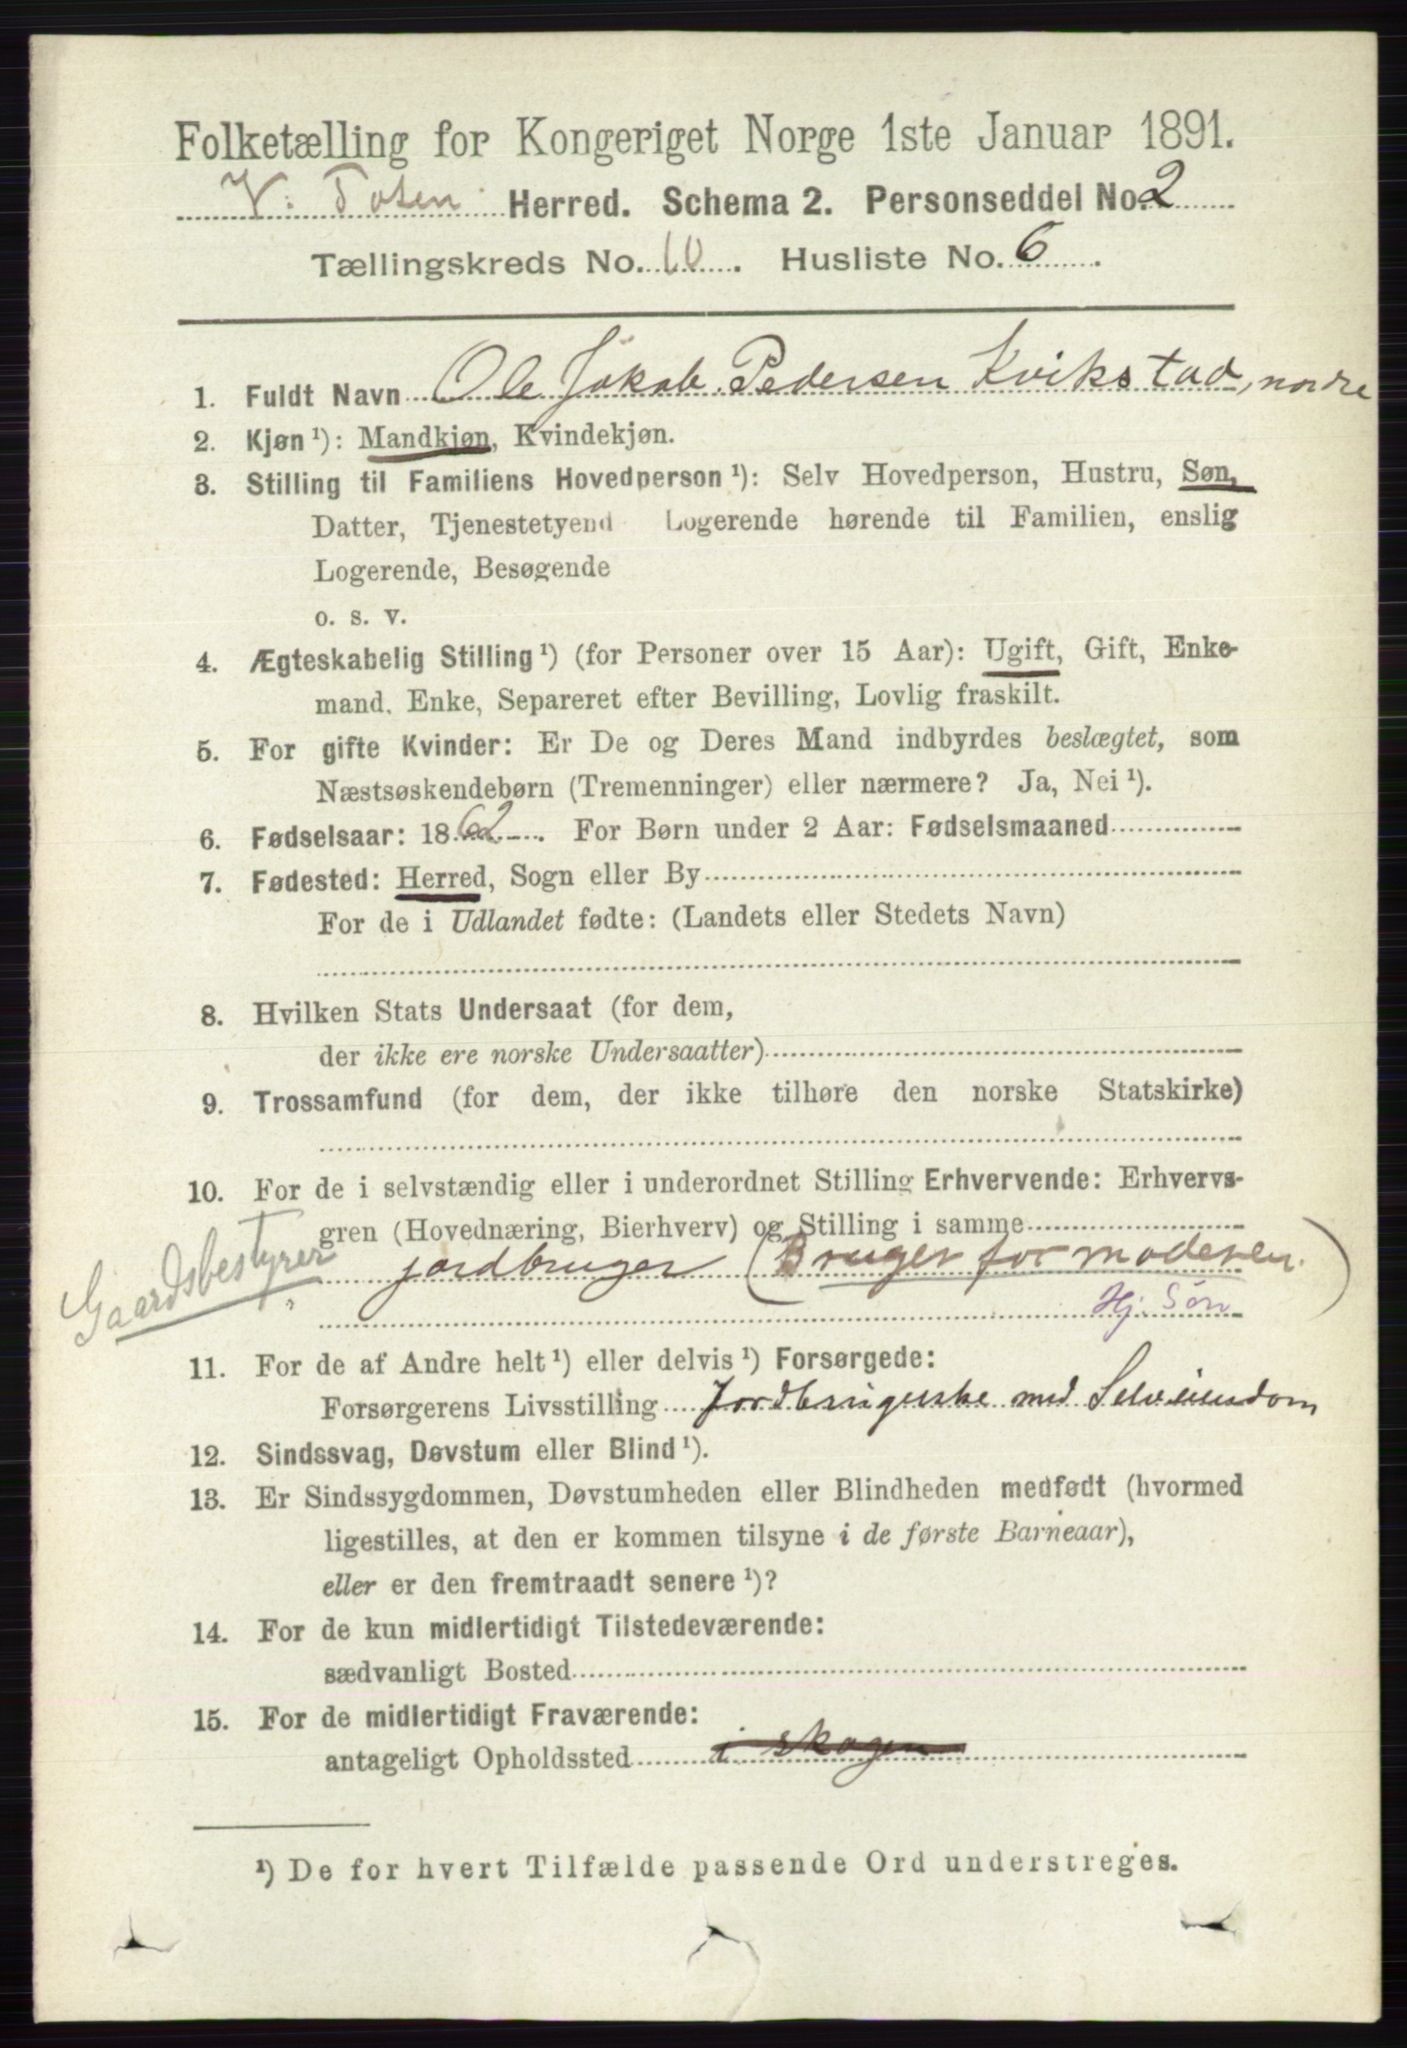 Folketælling for Kongeriget Norge 1ste Januar 1891.
V. Toten Herred. Schema 2. Personseddel No. 2
Tællingskreds No. 10. Husliste No. 6.
1. Fuldt Navn Ole Jakob Pedersen Kvikstad, nordre
2. Kjøn¹): Mandkjøn, Kvindekjøn.
3. Stilling til Familiens Hovedperson¹): Selv Hovedperson, Hustru, Søn,
Datter, Tjenestetyend Logerende hørende til Familien, enslig
Logerende, Besøgende
o. s. v.
4. Ægteskabelig Stilling¹) (for Personer over 15 Aar): Ugift, Gift, Enke-
mand, Enke, Separeret efter Bevilling, Lovlig fraskilt.
5. For gifte Kvinder: Er De og Deres Mand indbyrdes beslægtet, som
Næstsøskendebørn (Tremenninger) eller nærmere? Ja, Nei¹).
6. Fødselsaar: 1862. For Børn under 2 Aar: Fødselsmaaned
7. Fødested: Herred, Sogn eller By
For de i Udlandet fødte: (Landets eller Stedets Navn)
8. Hvilken Stats Undersaat (for dem,
der ikke ere norske Undersaatter)
9. Trossamfund (for dem, der ikke tilhøre den norske Statskirke)
10. For de i selvstændig eller i underordnet Stilling Erhvervende: Erhvervs-
gren (Hovednæring, Bierhverv) og Stilling i samme
Gaardsbestyrer jordbruger (Bruger for moderen.)
Hj. Søn
11. For de af Andre helt¹) eller delvis¹) Forsørgede:
Forsørgerens Livsstilling Jordbrugerske med Selveiendom
12. Sindssvag, Døvstum eller Blind¹).
13. Er Sindssygdommen, Døvstumheden eller Blindheden medfødt (hvormed
ligestilles, at den er kommen tilsyne i de første Barneaar),
eller er den fremtraadt senere¹)?
14. For de kun midlertidigt Tilstedeværende:
sædvanligt Bosted
15. For de midlertidigt Fraværende:
antageligt Opholdssted i skogen
¹) De for hvert Tilfælde passende Ord understreges.